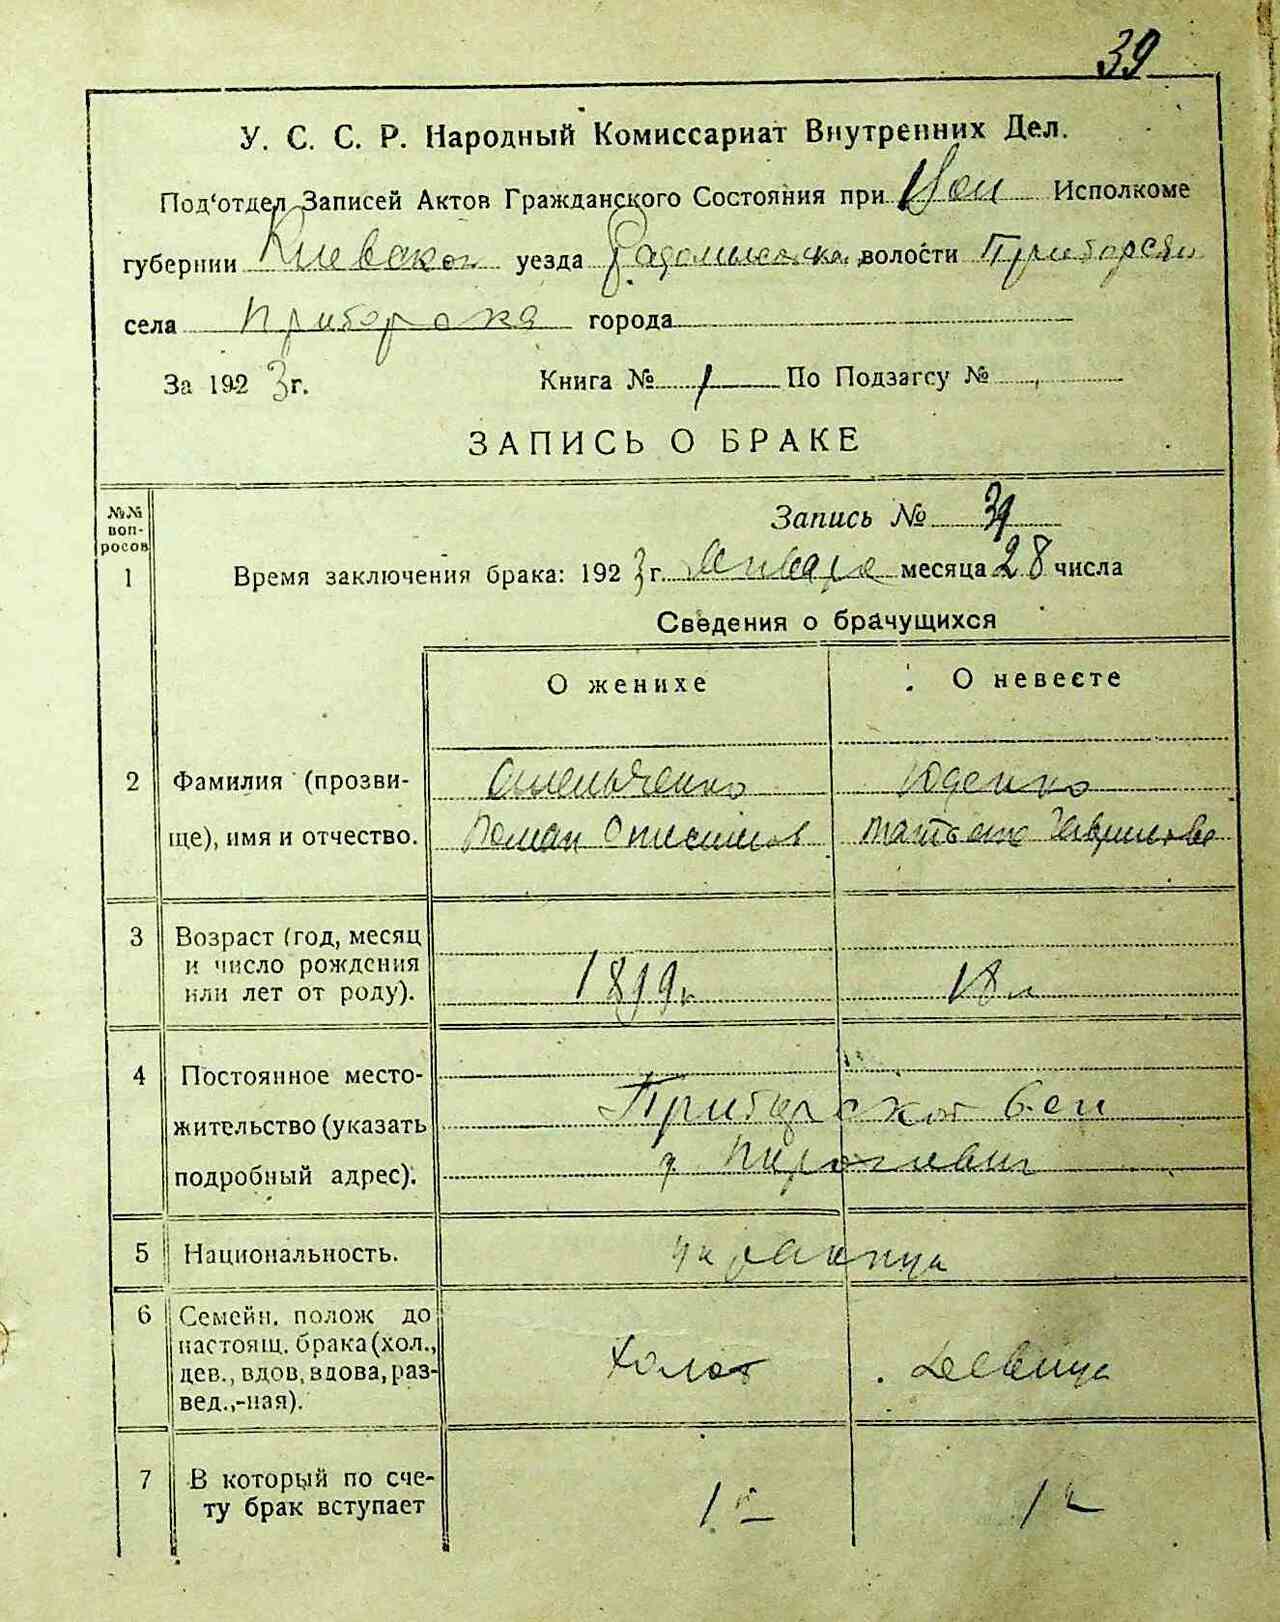 39
У. С. С. Р. Народный Комиссариат Внутренних Дел.
Под‘отдел Записей Актов Гражданского Состояния при Исполкоме
губернии Киевской уезда волости
села Приборска города
За 1923г. Книга № 1 По Подзагсу №
ЗАПИСЬ О БРАКЕ
№№ воп-
росов
Запись № 39
1 Время заключения брака: 1923г. Января месяца 28 числа
Сведения о брачущихся
О женихе О невесте
2 Фамилия (прозви- Омельченко Юденко
ще), имя и отчество. Роман Татьяна
3 Возраст (год, месяц
и число рождения
или лет от роду). 1899г 18 л
4 Постоянное место-
жительство (указать Приборской
подробный адрес).
5 Национальность. украинцы
6 Семейн. полож до
настоящ. брака (хол.,
дев., вдов, вдова, раз- Холост Девица
вед.,-ная).
7 В который по сче-
ту брак вступает 1й 1й